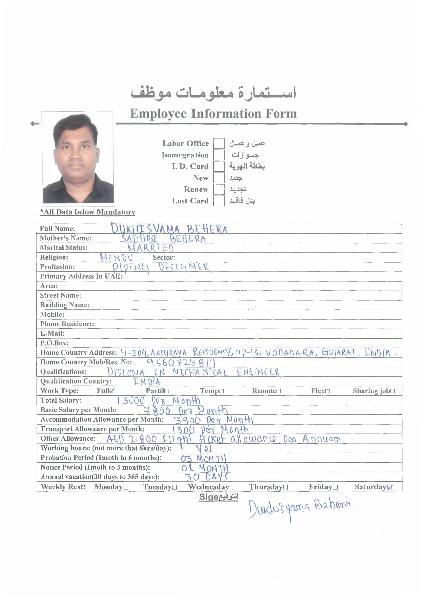 استمارة معلومات موظف
Employee Information Form
Labor Office عمل وعمال
Immegration جوازات
I. D. Card بطاقة الهوية
New جديد
Renew تجديد
Lost Card بدل فاقد
*All Data below Mandatory
Full Name: BEHERA
Mother's Name: BEHERA
Marital Status: MARRIED
Religion: HINDU Sector:
Profession: DESIGNER
Primary Address In UAE:
Area:
Street Name:
Building Name:
Mobile:
Phone Residence:
E-Mail:
P.O.Box:
Home Country Address: VADADARA, GUJARAT, INDIA.
Home Country Mob/Res. No:
Qualifications: DIPLOMA IN MECHANICAL ENGINEER
Qualification Country: INDIA
Work Type: Full Partil Temp Remote Flexi Sharing job
Total Salary: 13000 Per Month
Basic Salary per Month: 7800 Per Month
Accommodation Allowance per Month: 3900 Per Month
Transport Allowance per Month: 1300 Per Month
Other Allowance: AED 2,800 Flight ticket allowance Per Annum
Working hours: (not more that 8hrs/day): Yes
Probation Period (1moth to 6 months): 03 MONTH
Notice Period (1moth to 3 months): 01 MONTH
Annual vacation(30 days to 365 days): 30 DAYS
Weekly Rest: Monday Tuesday Wednesday Thursday Friday Saturday
Sign التوقيع
Behera